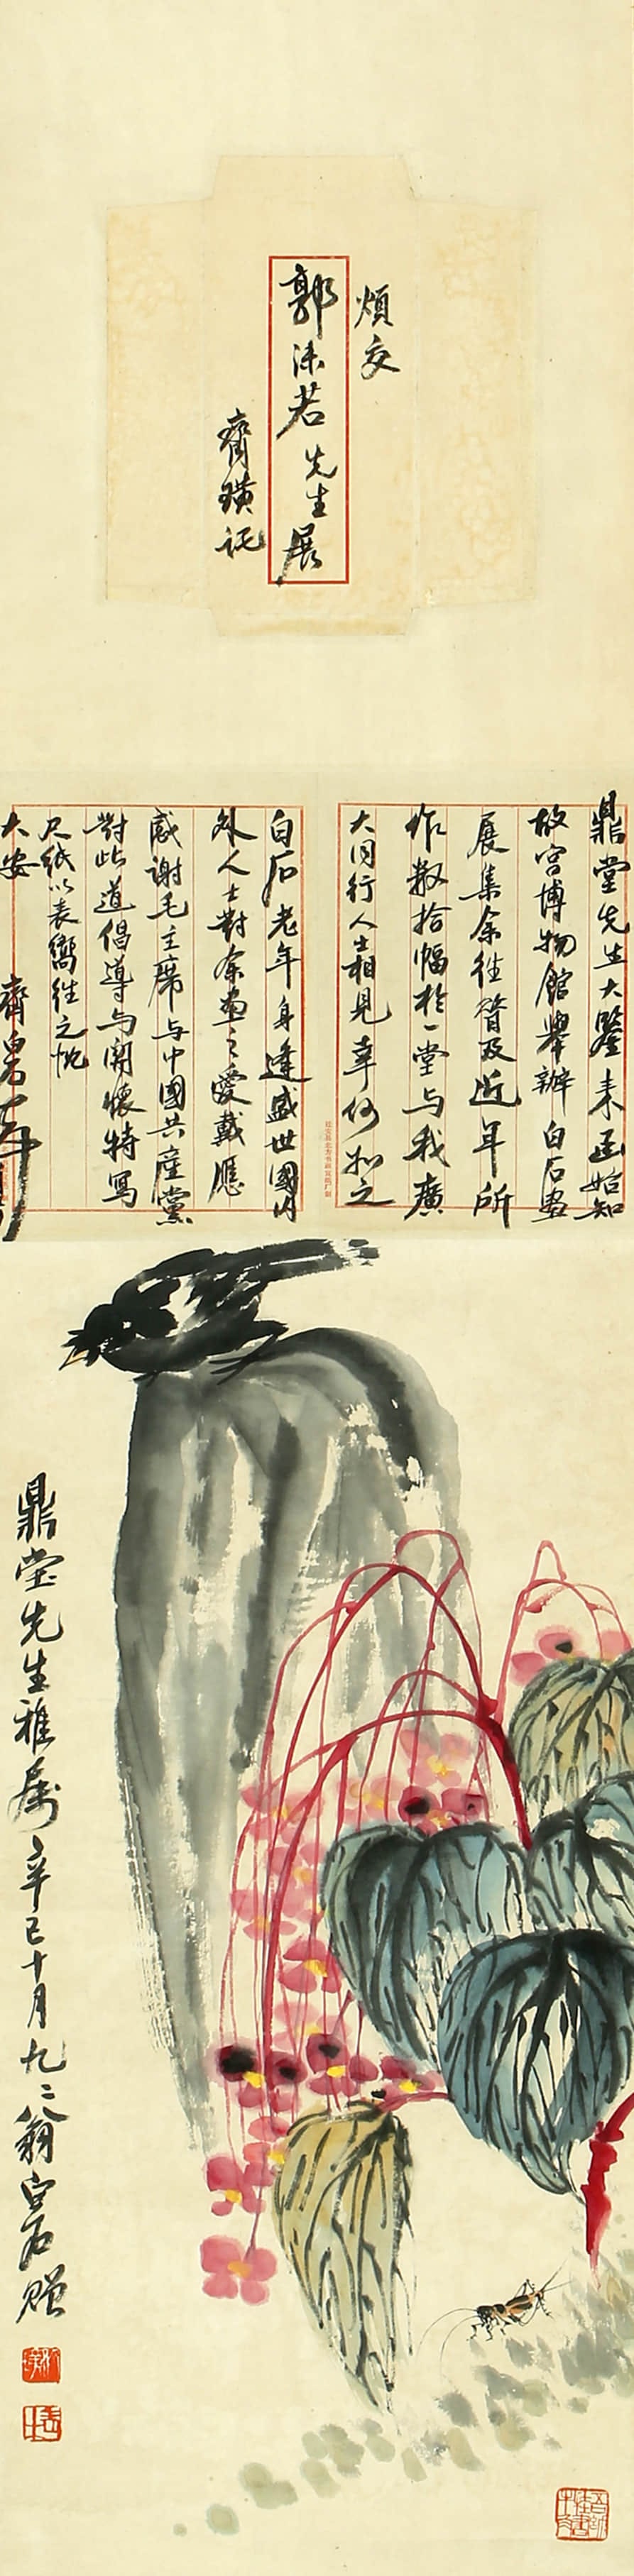 煩交
郭沫若先生展
齊璜託
鼎堂先生大鑒来函始知
故宫博物館舉辦白石畫
展集余徃昔及近年所
作数拾幅於一堂与我廣
大同行人士相見幸何如之
白石老年身逢盛世國内
外人士對余畫之愛戴應
感谢毛主席与中國共產黨
對此道倡導与関懷特寫
尺紙以表嚮往之忱
大安
齊白石
鼎堂先生雅屬辛巳十月九二翁白石贈